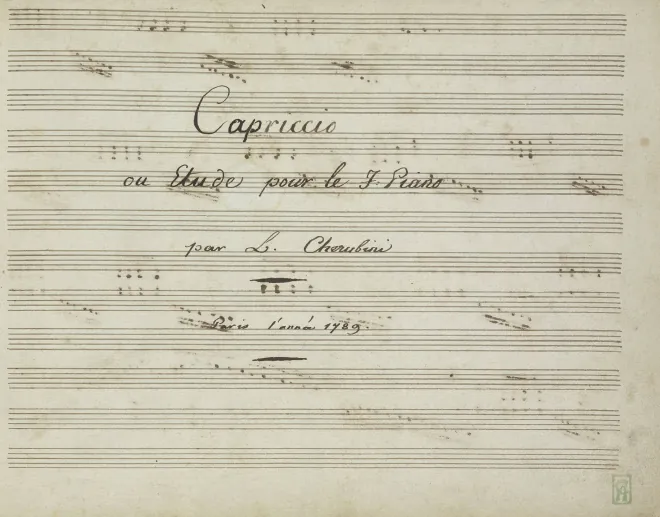 Capriccio
ou Etude pour le F. Piano
par L. Cherubini
Paris l'anná 1789.